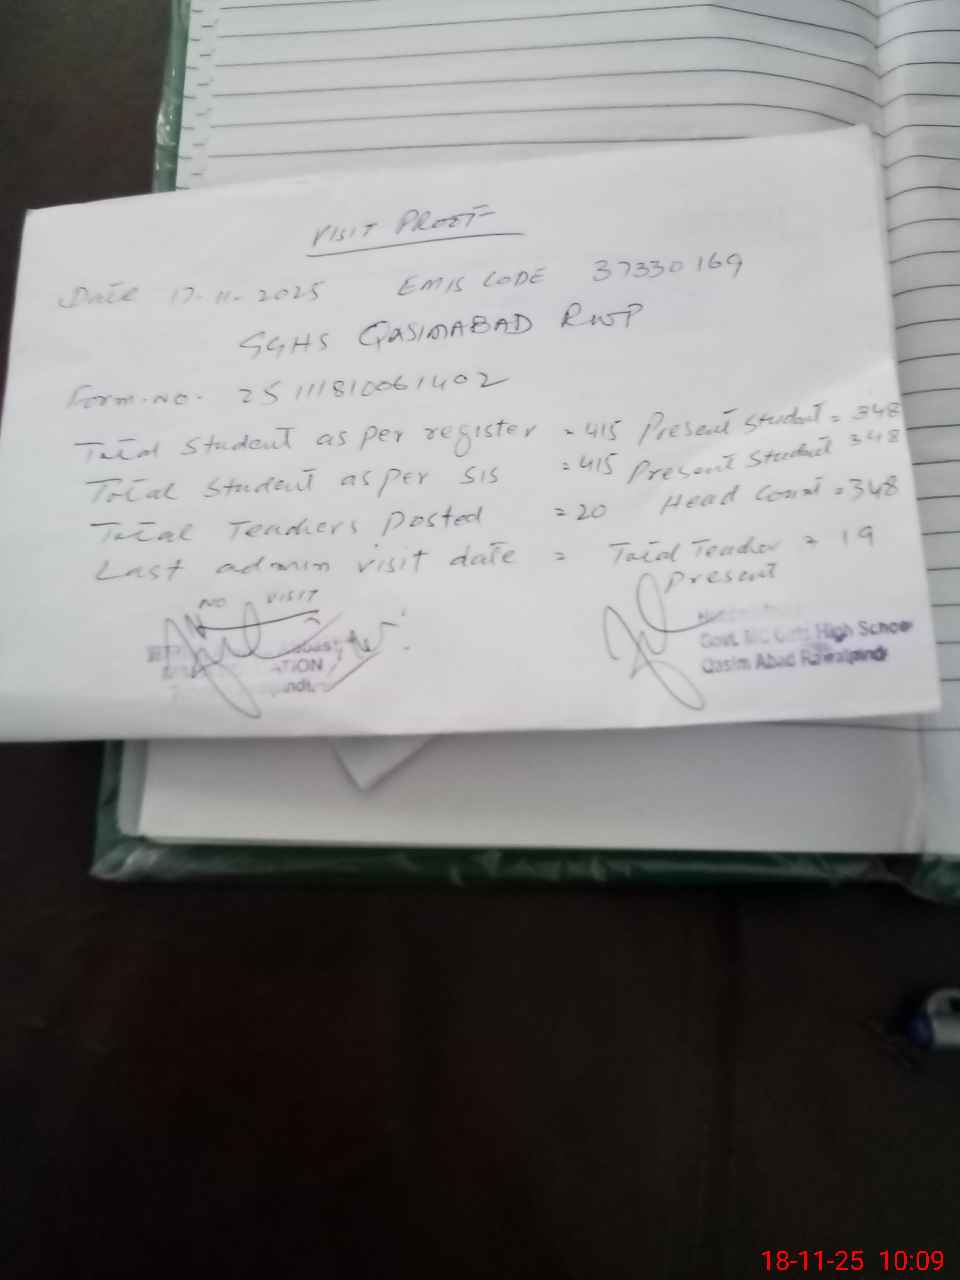 VISIT PROOF
Date 17-11-2025 EMIS CODE 37330169
GGHS QASIMABAD RWP
Form.No. 25111181006 1402
Total Student as per register = 415 Present Student = 348
Total Student as per SIS = 415 Present Student 348
Total Teachers Posted = 20 Head Count = 348
Last admin visit date = Total Teacher = 19
Present
NO VISIT
Govt. MC Girls High School
Qasim Abad Rawalpindi
ATION
18-11-25 10:09